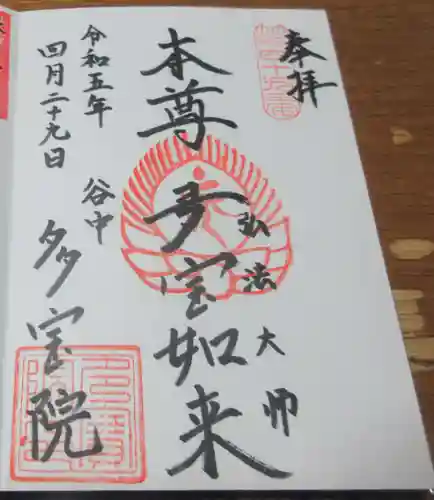 奉拝
本尊 多宝如来
弘法大師
令和五年
四月二十九日
谷中 多宝院